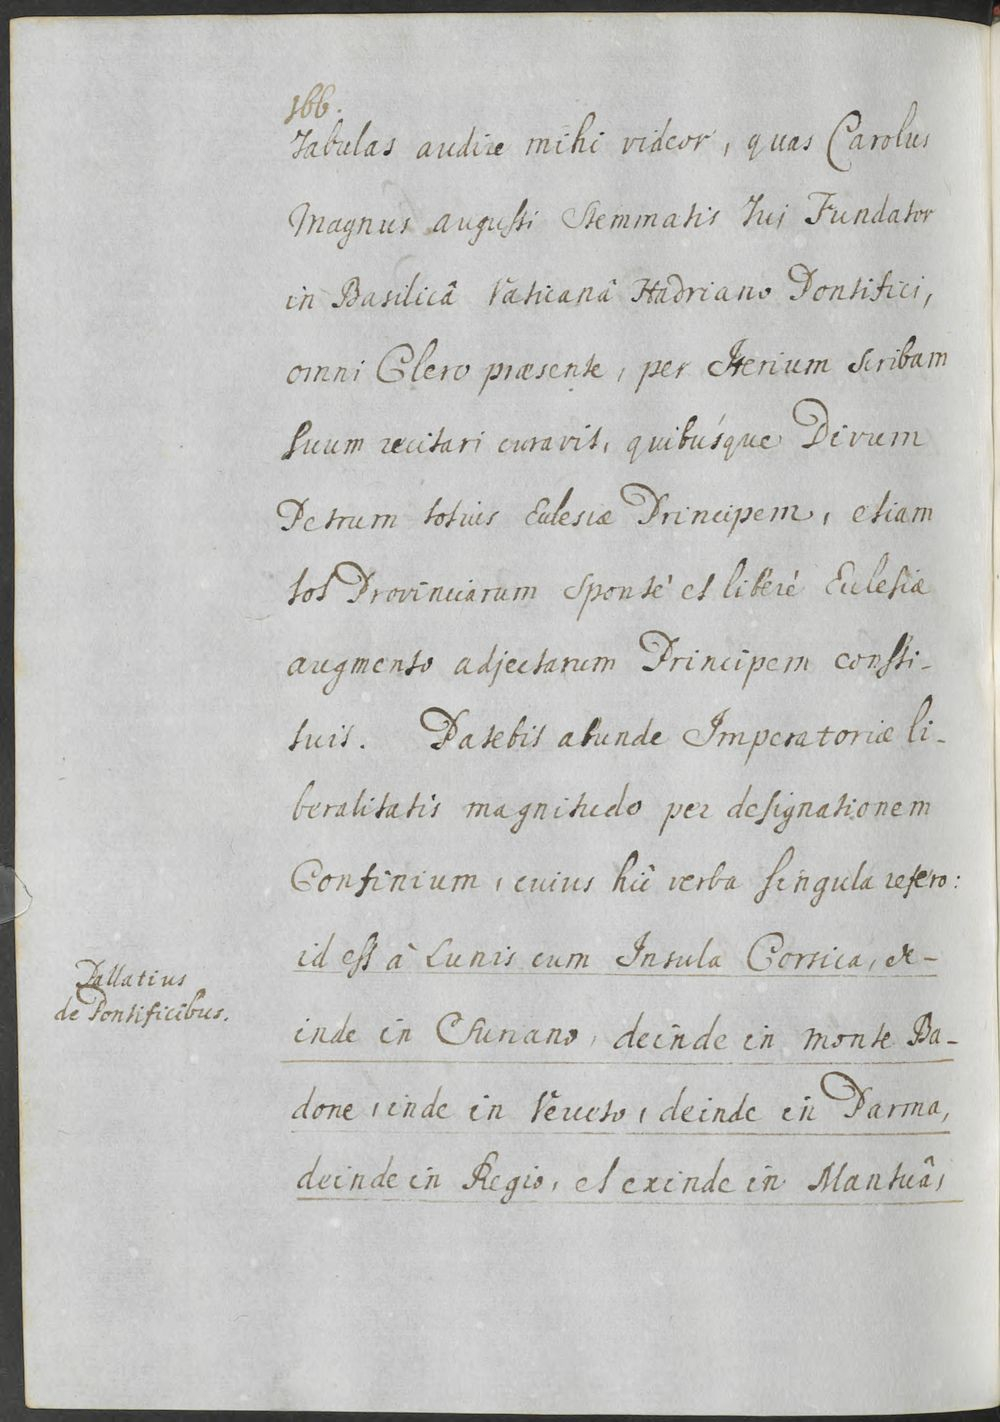 166.
Tabulas audire mihi videor, quas Carolus
Magnus augusti Stemmatis Tui Fundator
in Basilicâ Vaticanâ Hadriano Pontifici,
omni Clero præsente, per Iterium scribam
suum recitari curavit, quibúsque Divum
Petrum totius Eclesiæ Principem, etiam
tot Provinciarum Sponté et liberé Eclesiæ
augmento adjectarum Principem consti-
tuit. Patebit abunde Imperatoriæ li-
beralitatis magnitudo per designationem
Confinium, cuius hîc verba singula refero:
id est à Lunis cum Insula Corsica, de-
Pallatius
de Pontificibus.
inde in Suriano, deinde in monte Ba-
done, inde in Verceto, deinde in Parma,
deinde in Regio, et exinde in Mantuâ,